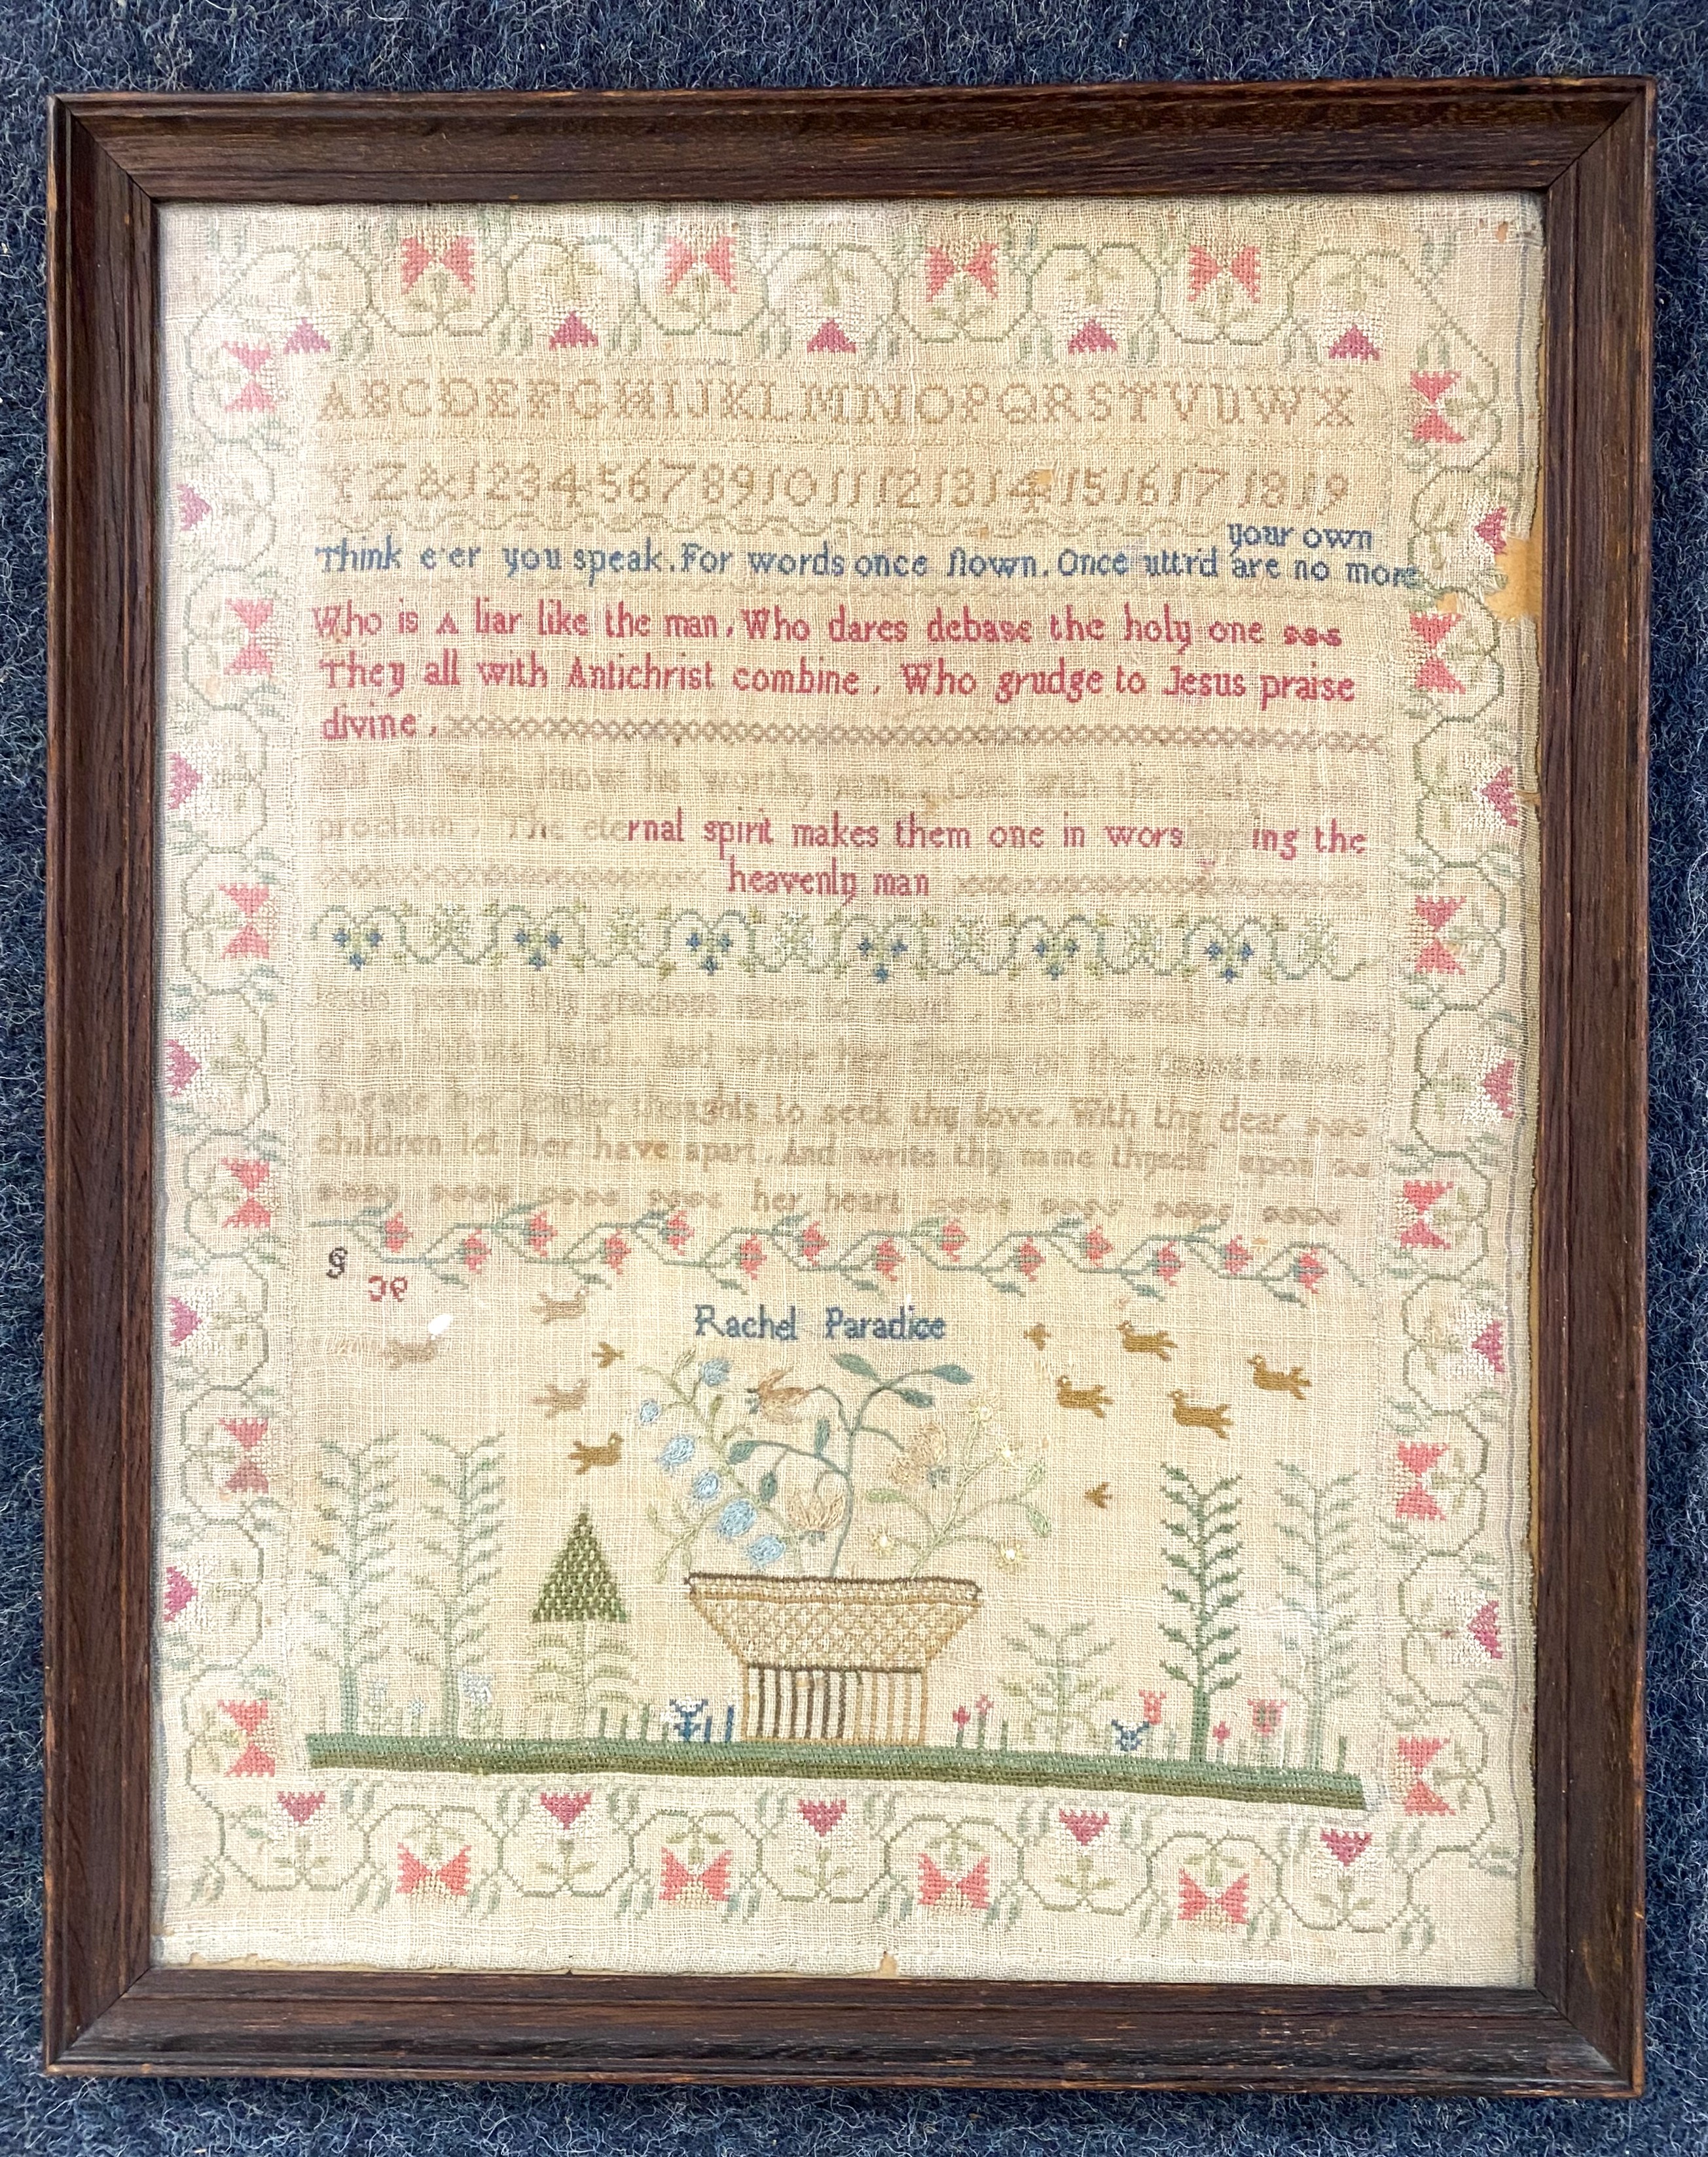 ABCDEFGHIJKLMNOPQRSTVUWX
YZ&12345678910111213141516171819
your own
Think e'er you speak. For words once flown. Once uttrd are no more
Who is A liar like the man, Who dares debase the holy one
They all with Antichrist combine, Who grudge to Jesus praise
divine,
who know his worthy name, One with the
proclaim, The eternal spirit makes them one in wors ing the
heavenly man
Jesus permit thy gracious name to stand, As the
of an hand And while her fingers on the move
her tender thoughts to seek thy love, With thy dear
children let her have apart, And write thy name thyself upon
her heart
Rachel Paradice